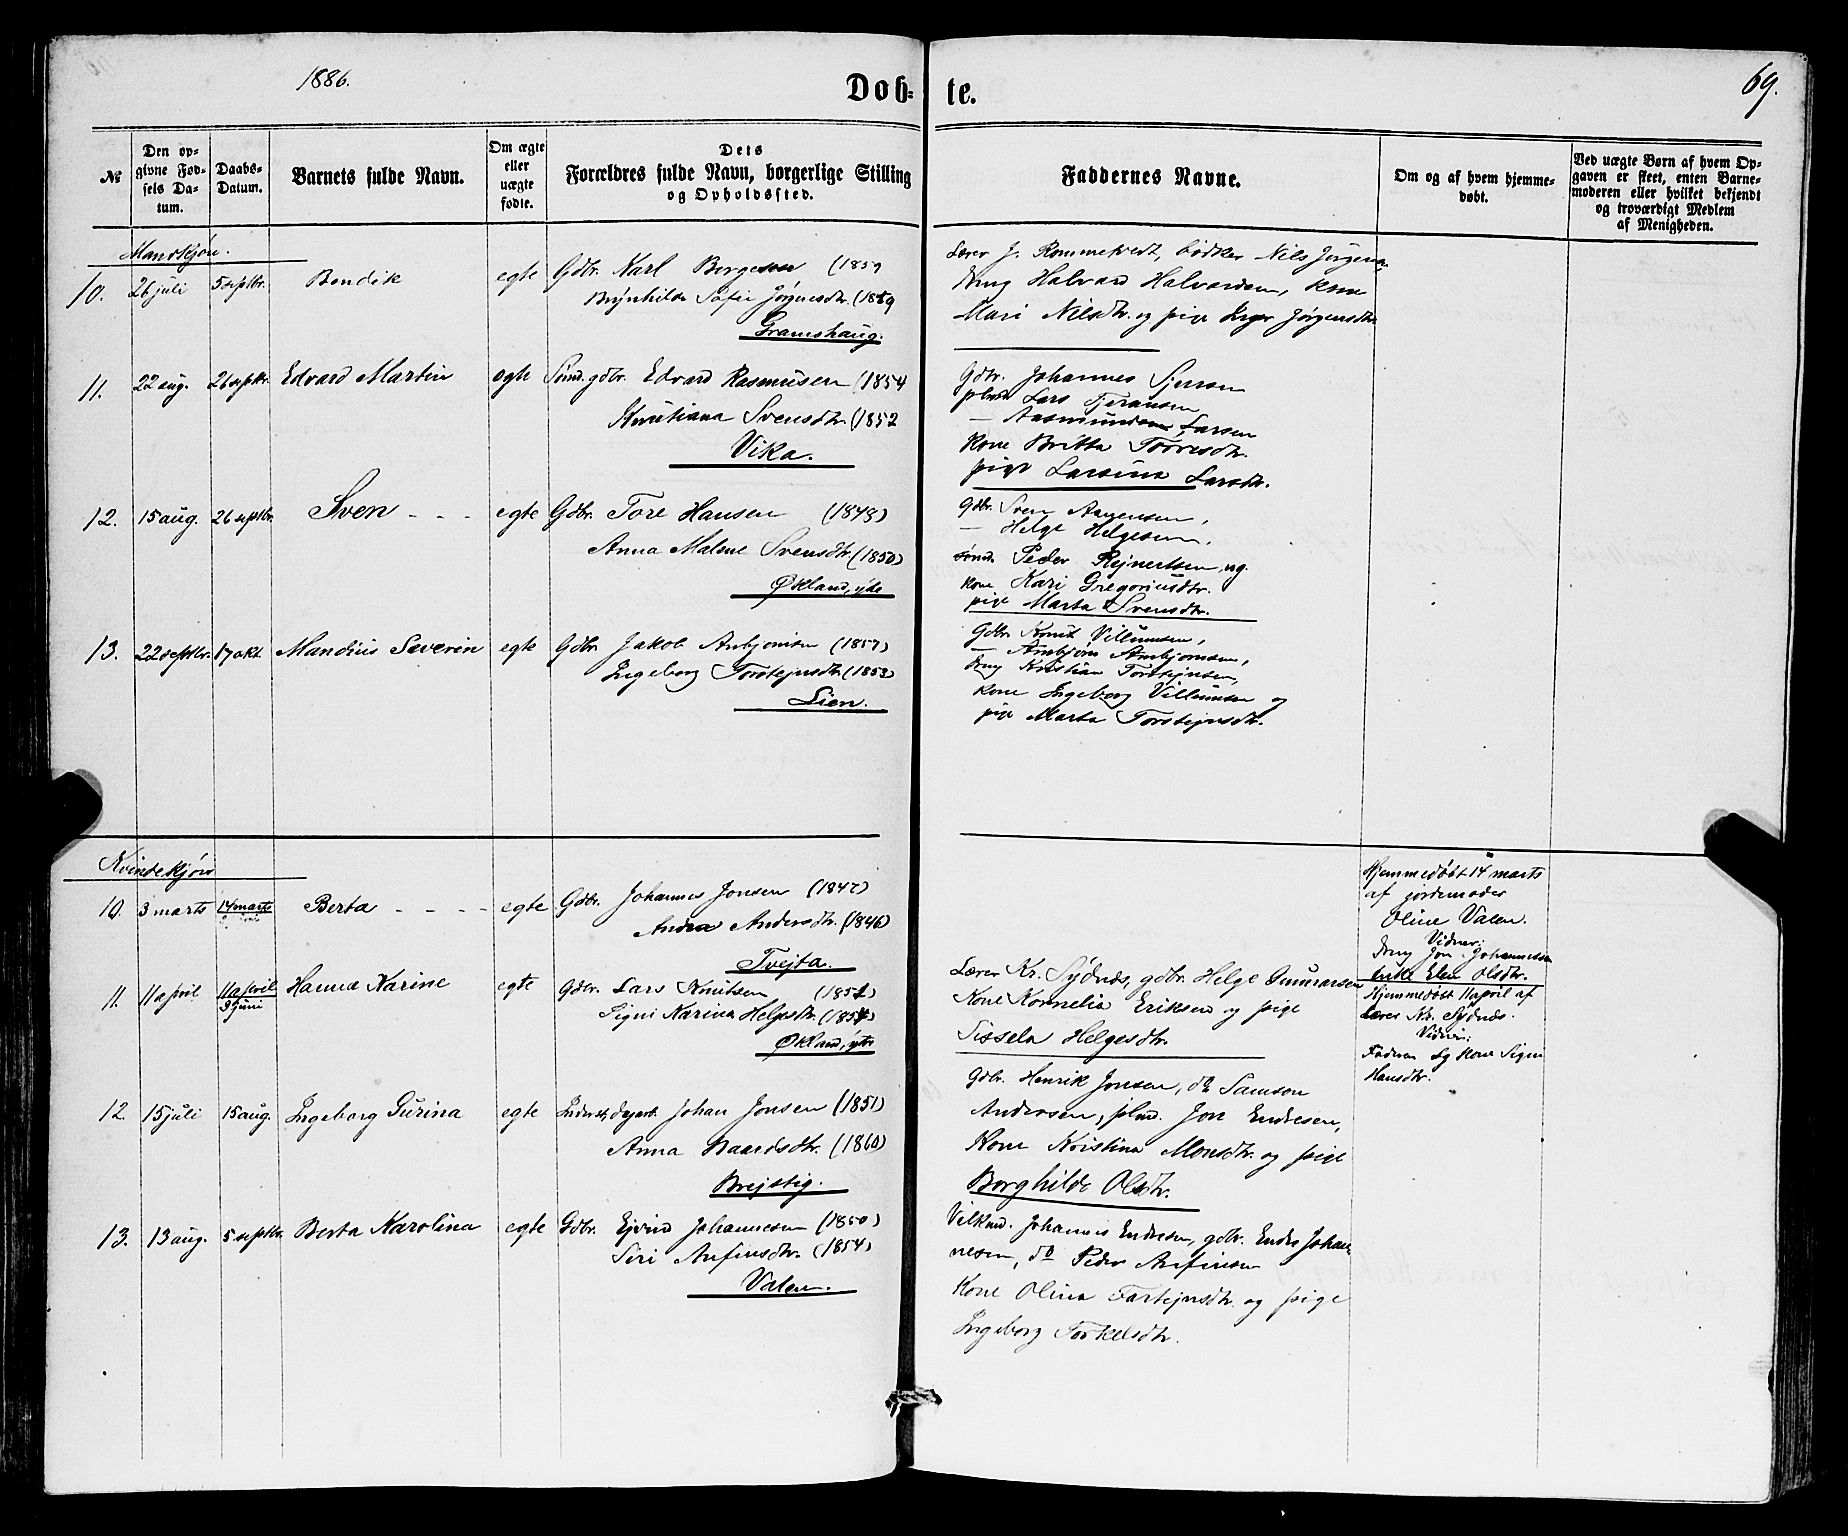 1886.
Døb-
te.
69.
№
Den op-
givne Fød-
sels Da-
tum.
Daabs-
Datum.
Barnets fulde Navn.
Om ægte
eller
uægte
fødte.
Dets
Forældres fulde Navn, borgerlige Stilling
og Opholdssted.
Faddernes Navne.
Om og af hvem hjemme-
døbt.
Ved uægte Børn af hvem Op-
gaven er skeet, enten Barne-
moderen eller hvilket bekjendt
og troværdigt Medlem
af Menigheden.
Mandkjøn.
10. 26 juli 5 septbr. Bendik egte Gdbr. Karl Børgesen (1859
Brynhilda Sofie Jørgnesdtr. (1859
Gramshaug.
Lærer J. Rommetvedt, bødker Nils Jørgensen
dreng Halvard Halvardsen, kone
Mari Nilsdtr. og pige Inger Jørgensdtr.
11. 22 aug. 26 septbr. Edvard Martin egte Sømd. gdbr. Edvard Rasmusen (1854
Kristiana Svensdtr. (1852
Vika.
Gdbr. Johannes Sjursen
plmd. Lars Tjeransen
— Aasmund Larsen
kone Britta Toresdtr.
pige Larsina Larsdtr.
12. 15 aug. 26 septbr. Sven - - - egte Gdbr. Tore Hansen (1848)
Anna Malene Svensdtr. (1850)
Økland, ytre
Gdbr. Sven Aagensen,
— Helge Helgesen,
sømd. Peder Rejnertsen, ug.
kone Kari Gregoriusdtr.
pige Marta Svensdtr.
13. 22 septbr. 17 okt. Mandius Severin egte Gdbr. Jakob Anbjørnsen (1857)
Ingeborg Torstejnsdtr. (1853)
Lien.
Gdbr. Knut Villumsen,
— Arnbjørn Arnbjørnsen,
dreng Kristian Torstejnsen,
kone Ingeborg Villumsen og
pige Marta Torstejnsdtr.
Kvindekjøn
10. 3 marts 14 marts Berta - - - - egte Gdbr. Johannes Jonsen (1847)
Andrea Andersdtr. (1846)
Tvejta.
Hjemmedøbt 14 marts
af jordemoder
Oline Valen.
Vidner:
dreng Jon Johannessen
enke Elen Olsdtr.
11. 11 april 11 april Hanna Karine egte Gdbr. Lars Knutsen (1851)
3 juni Signi Karina Helgesdtr. (1854)
Økland, ytre
Lærer Kr. Sydnæs, gdbr. Helge Gunnarsen
Kone Kornelia Eriksen og pige
Sissela Helgesdtr.
Hjemmedøbt 11 april af
Lærer Kr. Sydnæs.
Vidner:
Faderen og kone Signi
Hansdtr.
12. 15 juli 15 aug. Ingeborg Gurina egte Inderst, dagarb. Johan Jonsen (1851)
Anna Naardsdtr. (1860)
Brejstig.
Gdbr. Henrik Jonsen, do Samson
Andersen, plmd. Jon Endresen,
Kone Kristina Monsdtr. og pige
Borghilda Olsdtr.
13. 13 aug. 5 septbr. Berta Karolina egte Gdbr. Ejvind Johannesen (1850)
Siri Arfinsdtr. (1854)
Valen.
Vilkmd. Johannes Endresen, gdbr. Endre Johan-
nesen, do Peder Arfinsen
Kone Olina Tartejnsdtr. og pige
Ingeborg Torkelsdtr.